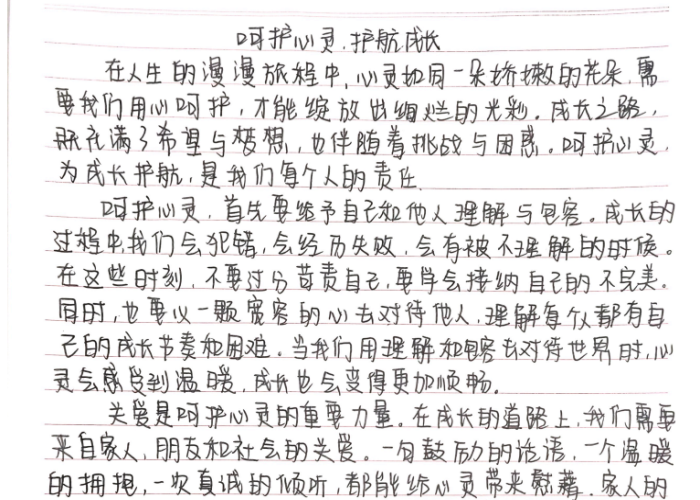 呵护心灵,护航成长
在人生的漫漫旅程中,心灵如同一朵娇嫩的花朵,需
要我们用心呵护,才能绽放出绚烂的光彩。成长之路,
既充满了希望与梦想,也伴随着挑战与困惑。呵护心灵,
为成长护航,是我们每个人的责任.
呵护心灵,首先要给予自己和他人理解与包容。成长的
过程中,我们会犯错,会经历失败,会有被不理解的时候。
在这些时刻,不要过分苛责自己,要学会接纳自己的不完美。
同时,也要以一颗宽容的心去对待他人,理解每个人都有自
己的成长节奏和困难。当我们用理解和包容去对待世界时,心
灵会感受到温暖,成长也会变得更加顺畅。
关爱是呵护心灵的重要力量。在成长的道路上,我们需要
来自家人、朋友和社会的关爱。一句鼓励的话语,一个温暖
的拥抱,一次真诚的倾听,都能给心灵带来慰藉。家人的